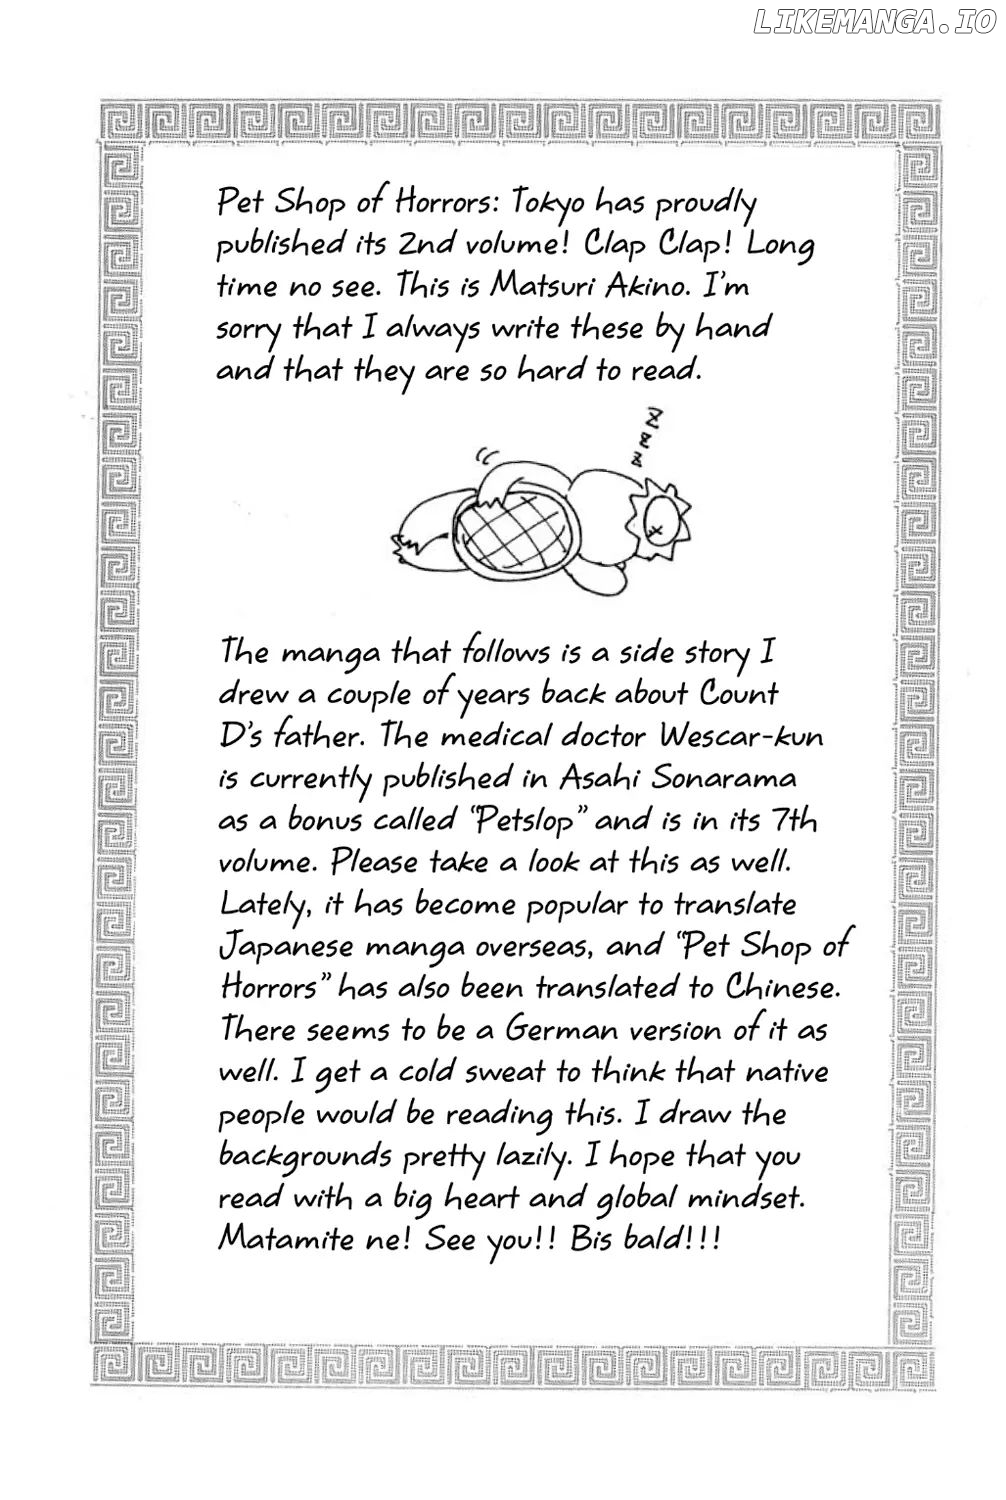 LIKEMANGA.IO
Pet Shop of Horrors: Tokyo has proudly
published its 2nd volume! Clap Clap! Long
time no see. This is Matsuri Akino. I'm
sorry that I always write these by hand
and that they are so hard to read.
z z z
The manga that follows is a side story I
drew a couple of years back about Count
D's father. The medical doctor Wescar-kun
is currently published in Asahi Sonarama
as a bonus called "Petslop" and is in its 7th
volume. Please take a look at this as well.
Lately, it has become popular to translate
Japanese manga overseas, and "Pet Shop of
Horrors" has also been translated to Chinese.
There seems to be a German version of it as
well. I get a cold sweat to think that native
people would be reading this. I draw the
backgrounds pretty lazily. I hope that you
read with a big heart and global mindset.
Matamite ne! See you!! Bis bald!!!